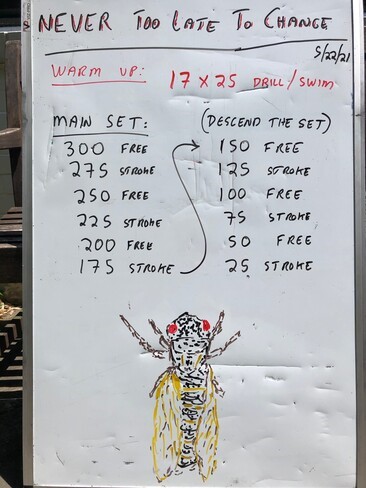 NEVER TOO LATE TO CHANGE
5/22/21
WARM UP: 17 x 25 DRILL/SWIM
MAIN SET:
300 FREE
275 STROKE
250 FREE
225 STROKE
200 FREE
175 STROKE
(DESCEND THE SET)
150 FREE
125 STROKE
100 FREE
75 STROKE
50 FREE
25 STROKE